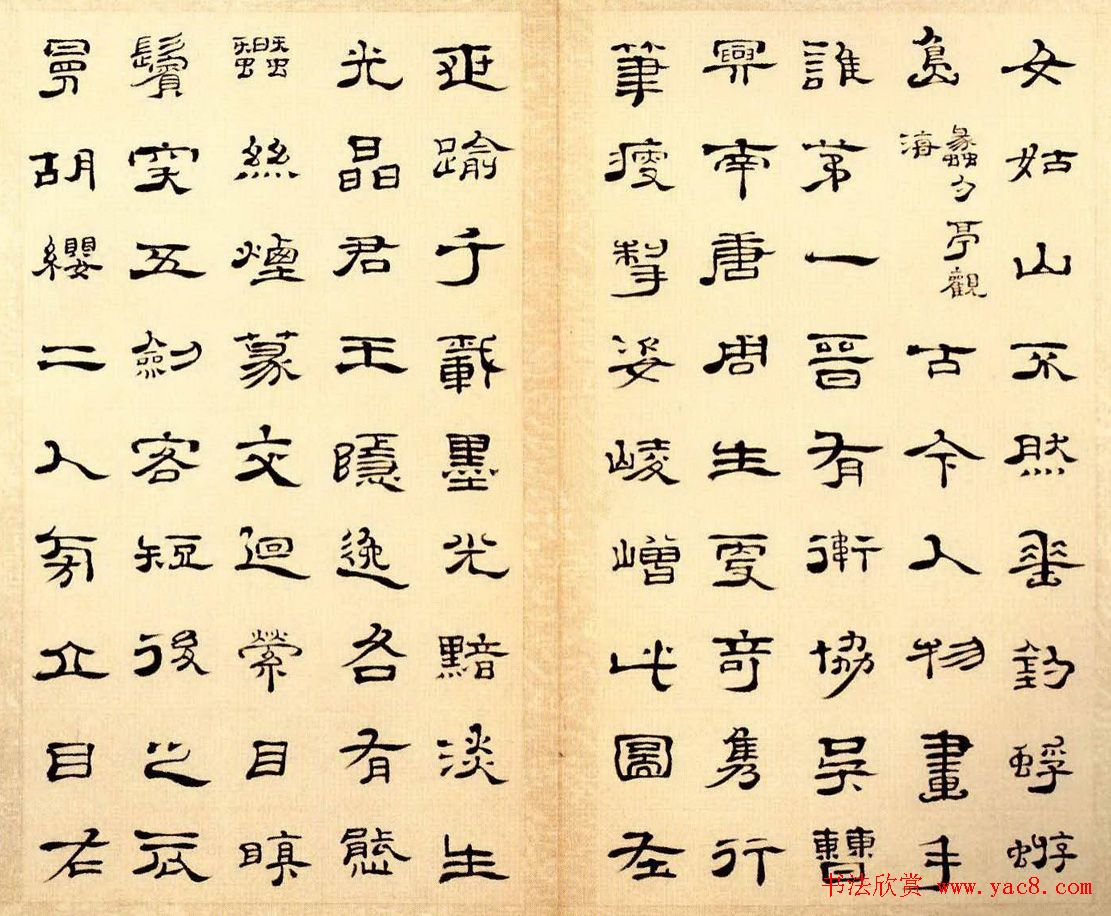 女姑山不然垂釣蜉蝣
島蠡勺亭觀海古今人物畫手
誰第一晉有衛協吳曹
興南唐周生更奇雋行
筆瘦掣姿崚嶒此圖在
世踰千載墨光黯淡生
光晶君王隱逸各有態
蠶絲煙篆交迴縈目瞋
鬢突五劍客短後之衣
曼胡纓二人旁立目右
书法欣赏 www.yac8.com